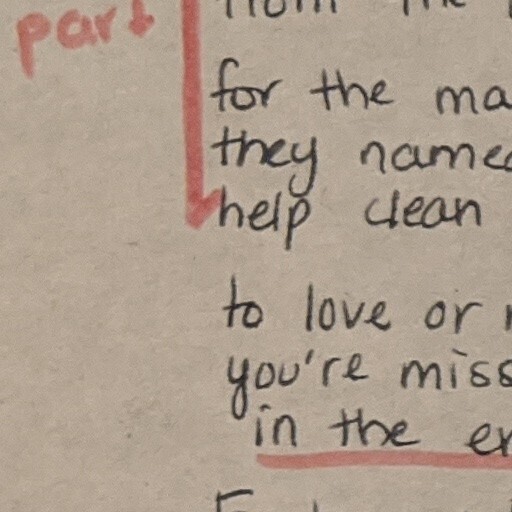 part
for the ma
they named
help clean
to love or
you're miss
in the en